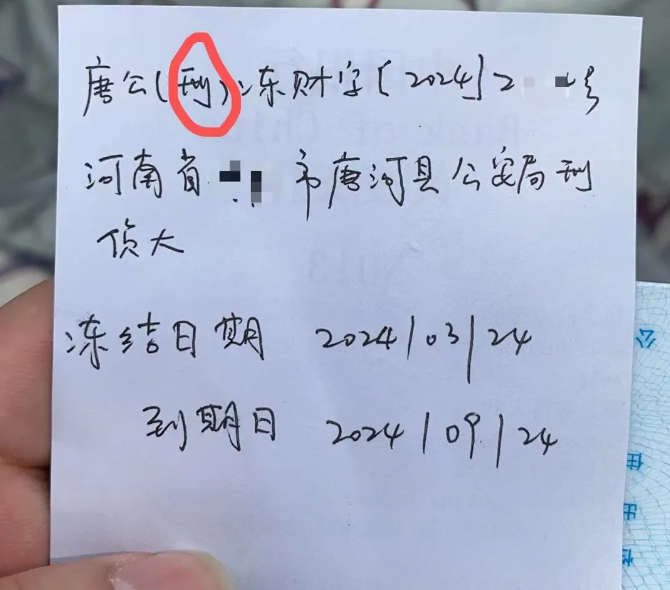 唐公(刑)冻财字[2024]2 号
河南省 市唐河县公安局刑
侦大
冻结日期 2024/03/24
到期日 2024/09/24
公
住
出
性